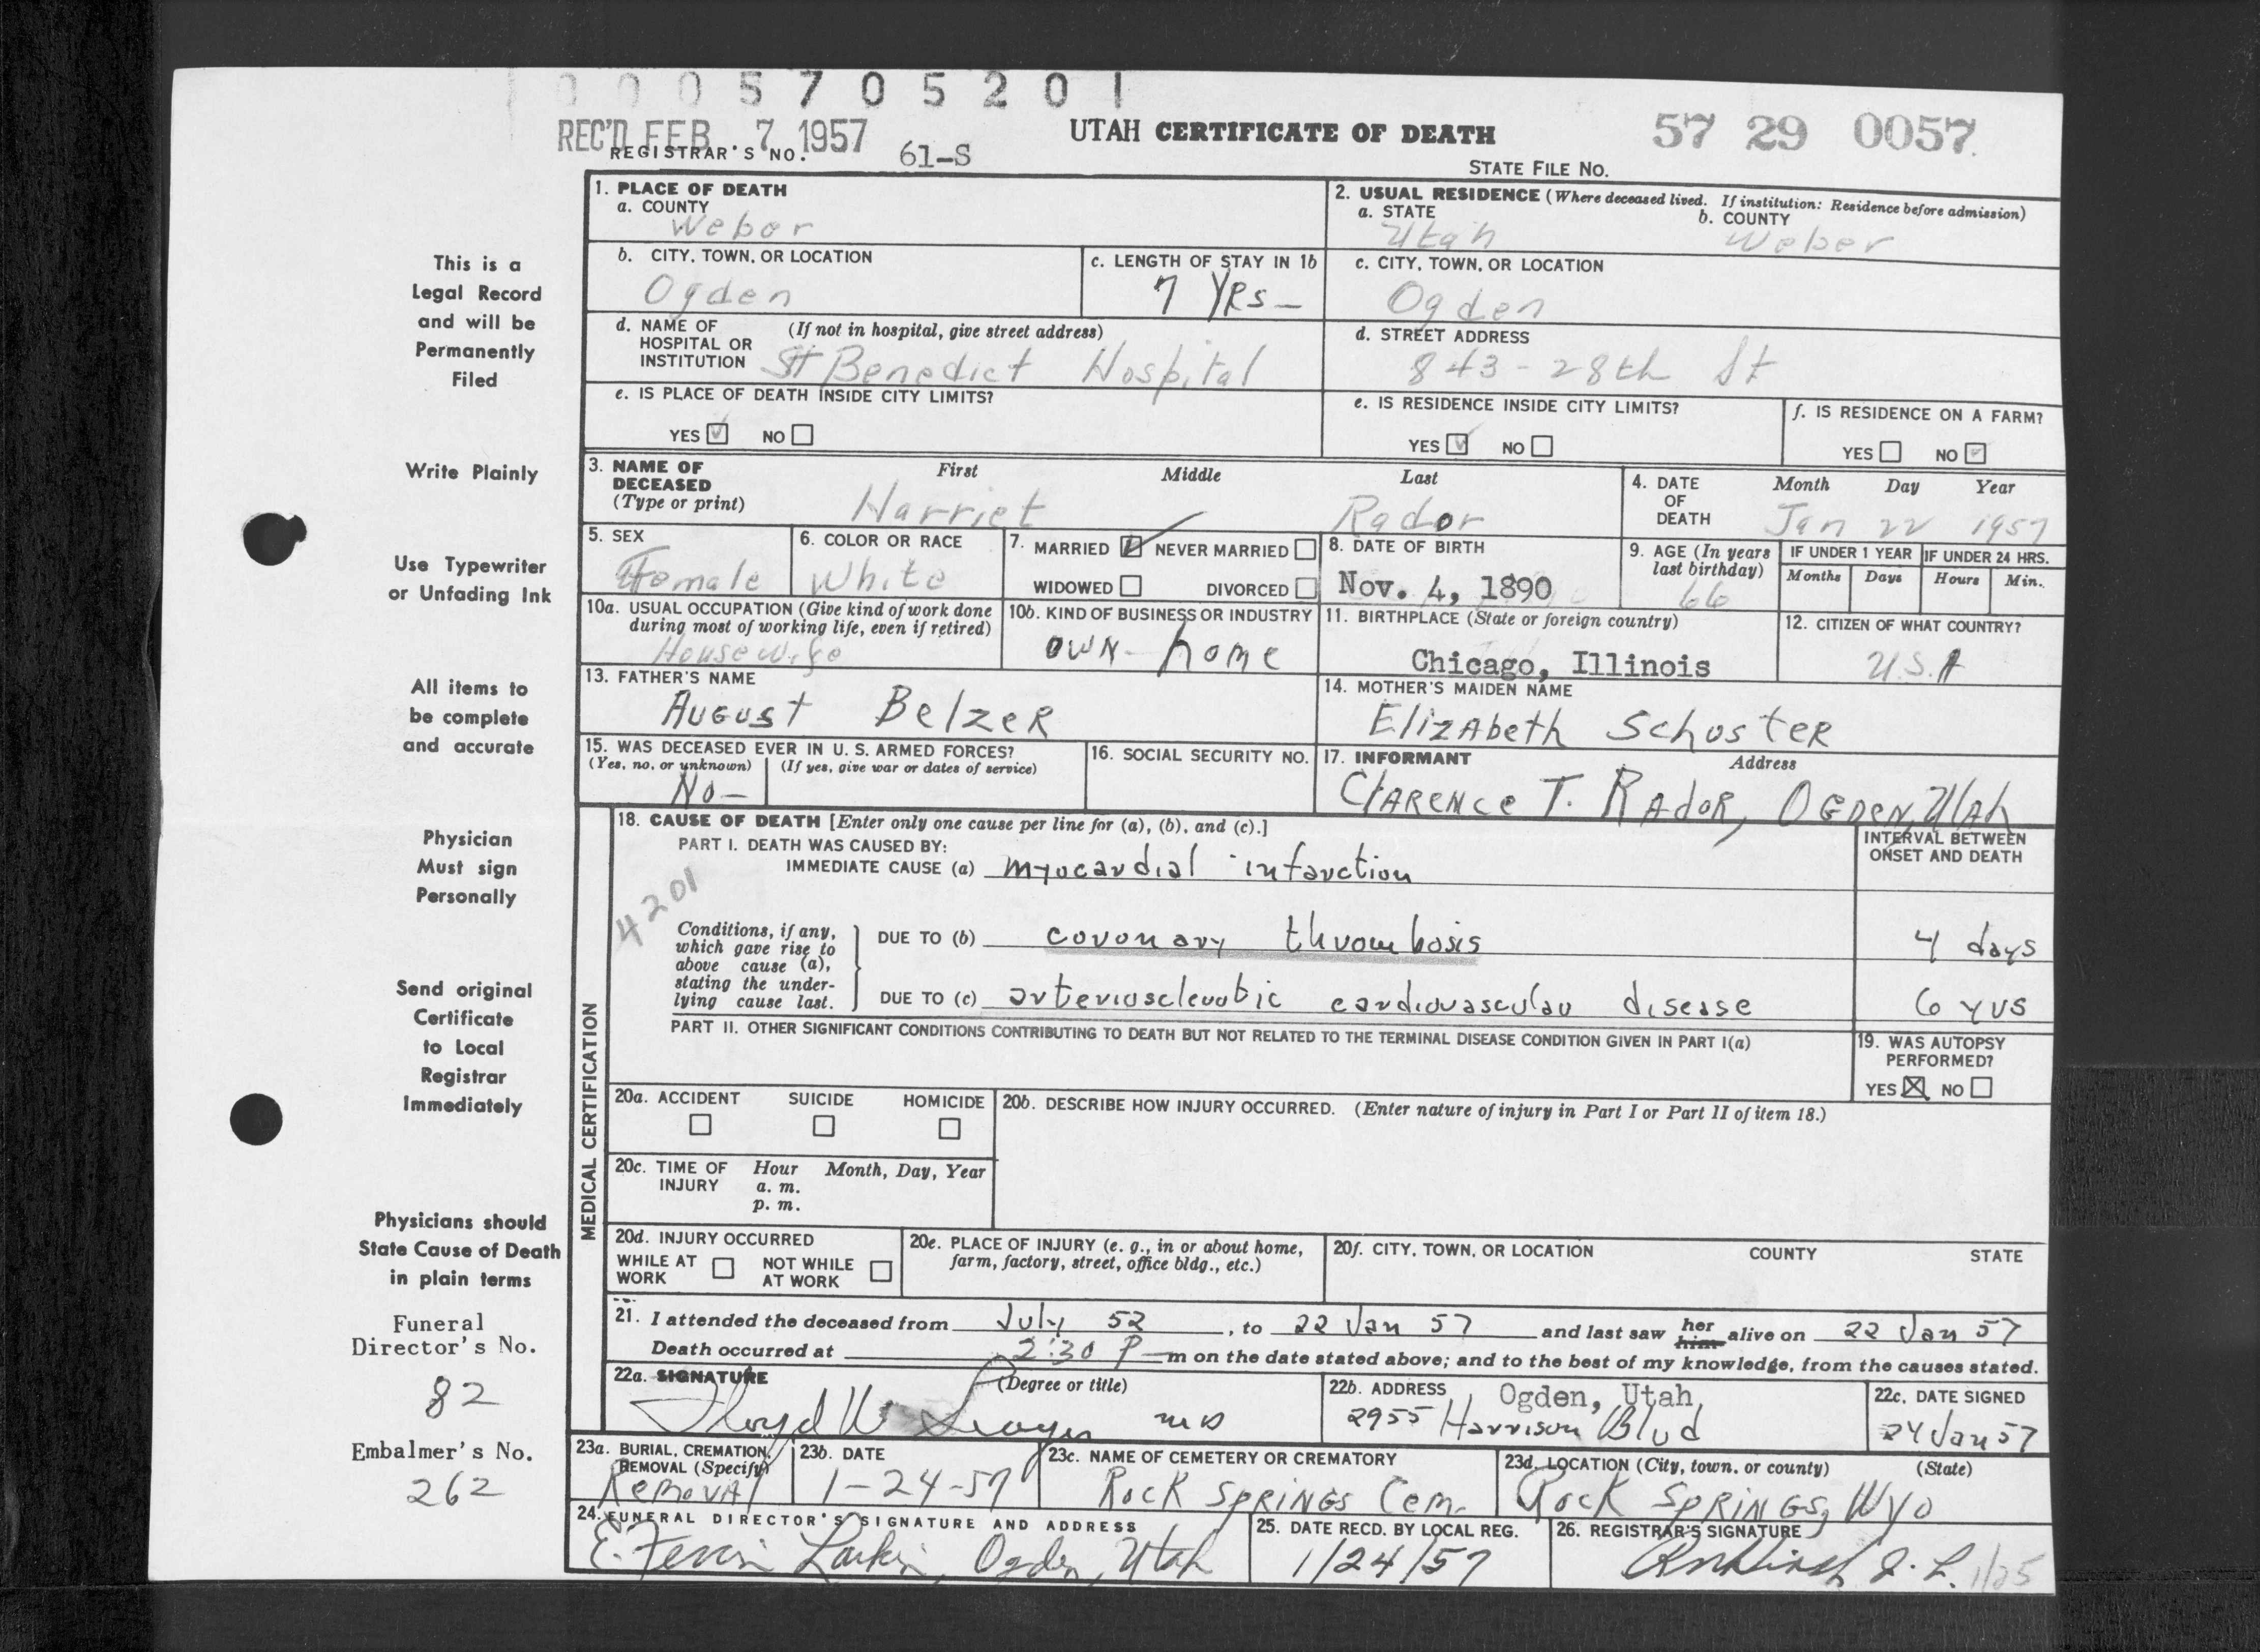 0005705201
REC'D FEB 7 1957
REGISTRAR'S NO. 61-S
UTAH CERTIFICATE OF DEATH
57 29 0057
STATE FILE NO.
This is a
Legal Record
and will be
Permanently
Filed
Write Plainly
Use Typewriter
or Unfading Ink
All items to
be complete
and accurate
Physician
Must sign
Personally
Send original
Certificate
to Local
Registrar
Immediately
Physicians should
State Cause of Death
in plain terms
Funeral
Director's No.
82
Embalmer's No.
262
1. PLACE OF DEATH
a. COUNTY
Weber
2. USUAL RESIDENCE (Where deceased lived. If institution: Residence before admission)
a. STATE
Utah
b. COUNTY
Weber
b. CITY, TOWN, OR LOCATION
Ogden
c. LENGTH OF STAY IN 1b
7 YRS-
c. CITY, TOWN, OR LOCATION
Ogden
d. NAME OF HOSPITAL OR INSTITUTION (If not in hospital, give street address)
St Benedict Hospital
d. STREET ADDRESS
843-28th St
e. IS PLACE OF DEATH INSIDE CITY LIMITS?
YES ☑ NO ☐
e. IS RESIDENCE INSIDE CITY LIMITS?
YES ☑ NO ☐
f. IS RESIDENCE ON A FARM?
YES ☐ NO ☑
3. NAME OF DECEASED (Type or print)
First Middle Last
Harriet Rador
4. DATE OF DEATH
Month Day Year
Jan 22 1957
5. SEX
Female
6. COLOR OR RACE
White
7. MARRIED ☑ NEVER MARRIED ☐
WIDOWED ☐ DIVORCED ☐
8. DATE OF BIRTH
Nov. 4, 1890
9. AGE (In years last birthday)
66
IF UNDER 1 YEAR
Months Days
IF UNDER 24 HRS.
Hours Min.
10a. USUAL OCCUPATION (Give kind of work done during most of working life, even if retired)
Housewife
10b. KIND OF BUSINESS OR INDUSTRY
OWN-home
11. BIRTHPLACE (State or foreign country)
Chicago, Illinois
12. CITIZEN OF WHAT COUNTRY?
U.S.A
13. FATHER'S NAME
August Belzer
14. MOTHER'S MAIDEN NAME
Elizabeth Schuster
15. WAS DECEASED EVER IN U. S. ARMED FORCES?
(Yes, no, or unknown) (If yes, give war or dates of service)
No-
16. SOCIAL SECURITY NO.
17. INFORMANT Address
Clarence T. Rador, Ogden, Utah
MEDICAL CERTIFICATION
18. CAUSE OF DEATH [Enter only one cause per line for (a), (b), and (c).]
PART I. DEATH WAS CAUSED BY:
IMMEDIATE CAUSE (a) myocardial infarction
INTERVAL BETWEEN ONSET AND DEATH
4201
Conditions, if any, which gave rise to above cause (a), stating the underlying cause last.
DUE TO (b) coronary thrombosis 4 days
DUE TO (c) arteriosclerotic cardiovascular disease 6 yrs
PART II. OTHER SIGNIFICANT CONDITIONS CONTRIBUTING TO DEATH BUT NOT RELATED TO THE TERMINAL DISEASE CONDITION GIVEN IN PART I(a)
19. WAS AUTOPSY PERFORMED?
YES ☒ NO ☐
20a. ACCIDENT ☐ SUICIDE ☐ HOMICIDE ☐
20b. DESCRIBE HOW INJURY OCCURRED. (Enter nature of injury in Part I or Part II of item 18.)
20c. TIME OF INJURY Hour Month, Day, Year
a. m.
p. m.
20d. INJURY OCCURRED
WHILE AT WORK ☐ NOT WHILE AT WORK ☐
20e. PLACE OF INJURY (e. g., in or about home, farm, factory, street, office bldg., etc.)
20f. CITY, TOWN, OR LOCATION COUNTY STATE
21. I attended the deceased from July 52, to 22 Jan 57 and last saw her him alive on 22 Jan 57
Death occurred at 2:30 P m on the date stated above; and to the best of my knowledge, from the causes stated.
22a. SIGNATURE (Degree or title)
Floyd W MD
22b. ADDRESS
Ogden, Utah
2955 Harrison Blvd
22c. DATE SIGNED
24 Jan 57
23a. BURIAL, CREMATION, REMOVAL (Specify)
Removal
23b. DATE
1-24-57
23c. NAME OF CEMETERY OR CREMATORY
Rock Springs Cem.
23d. LOCATION (City, town, or county) (State)
Rock Springs, Wyo
24. FUNERAL DIRECTOR'S SIGNATURE AND ADDRESS
E. Larkin, Ogden, Utah
25. DATE RECD. BY LOCAL REG.
1/24/57
26. REGISTRAR'S SIGNATURE
1/25